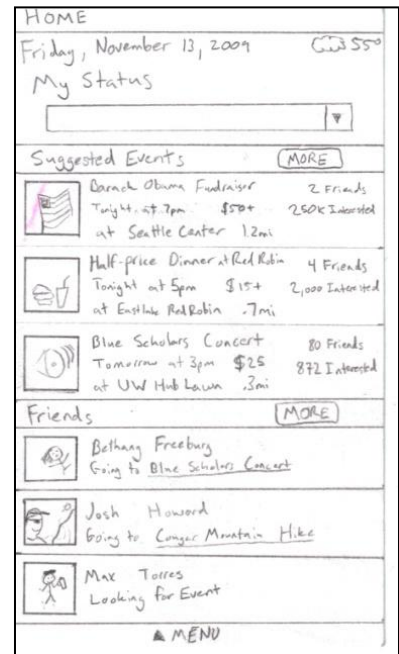 HOME
Friday, November 13, 2009 55°
My Status
Suggested Events MORE
Barack Obama Fundraiser 2 Friends
Tonight at 7pm $50+ 250K Interested
at Seattle Center 1.2mi
Half-price Dinner at Red Robin 4 Friends
Tonight at 5pm $15+ 2,000 Interested
at Eastlake Red Robin .7mi
Blue Scholars Concert 80 Friends
Tomorrow at 3pm $25 872 Interested
at UW Hub Lawn .3mi
Friends MORE
Bethany Freeburg
Going to Blue Scholars Concert
Josh Howard
Going to Cougar Mountain Hike
Max Torres
Looking for Event
▲ MENU